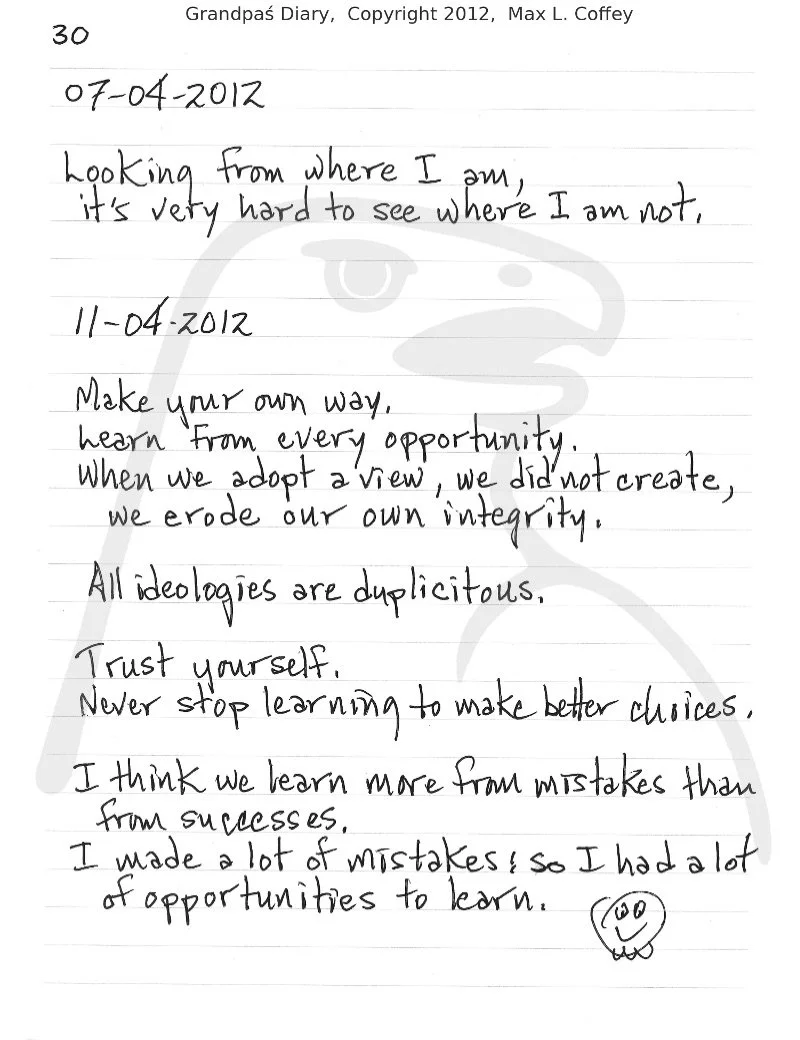 Grandpaś Diary, Copyright 2012, Max L. Coffey
30
07-04-2012
Looking from where I am,
it's very hard to see where I am not.
11-04-2012
Make your own way.
Learn from every opportunity.
When we adopt a view, we did not create,
we erode our own integrity.
All ideologies are duplicitous.
Trust yourself.
Never stop learning to make better choices.
I think we learn more from mistakes than
from successes.
I made a lot of mistakes; so I had a lot
of opportunities to learn.